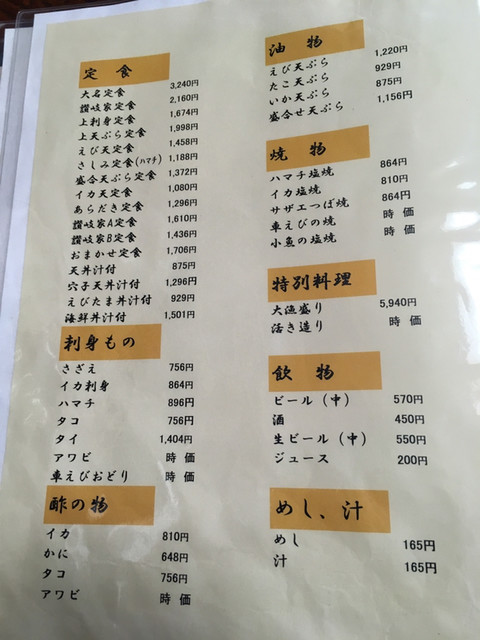 定食
大名定食 3,240円
讃岐家定食 2,160円
上刺身定食 1,674円
上天ぷら定食 1,998円
えび天定食 1,458円
さしみ定食(ハマチ) 1,188円
盛合天ぷら定食 1,372円
イカ天定食 1,080円
あらだき定食 1,296円
讃岐家A定食 1,610円
讃岐家B定食 1,436円
おまかせ定食 1,706円
天丼汁付 875円
穴子天丼汁付 1,296円
えびたま丼汁付 929円
海鮮丼汁付 1,501円
刺身もの
さざえ 756円
イカ刺身 864円
ハマチ 896円
タコ 756円
タイ 1,404円
アワビ 時価
車えびおどり 時価
酢の物
イカ 810円
かに 648円
タコ 756円
アワビ 時価
油物
えび天ぷら 1,220円
たこ天ぷら 929円
いか天ぷら 875円
盛合せ天ぷら 1,156円
焼物
ハマチ塩焼 864円
イカ塩焼 810円
サザエつぼ焼 864円
車えびの焼 時価
小魚の塩焼 時価
特別料理
大漁盛り 5,940円
活き造り 時価
飲物
ビール(中) 570円
酒 450円
生ビール(中) 550円
ジュース 200円
めし、汁
めし 165円
汁 165円